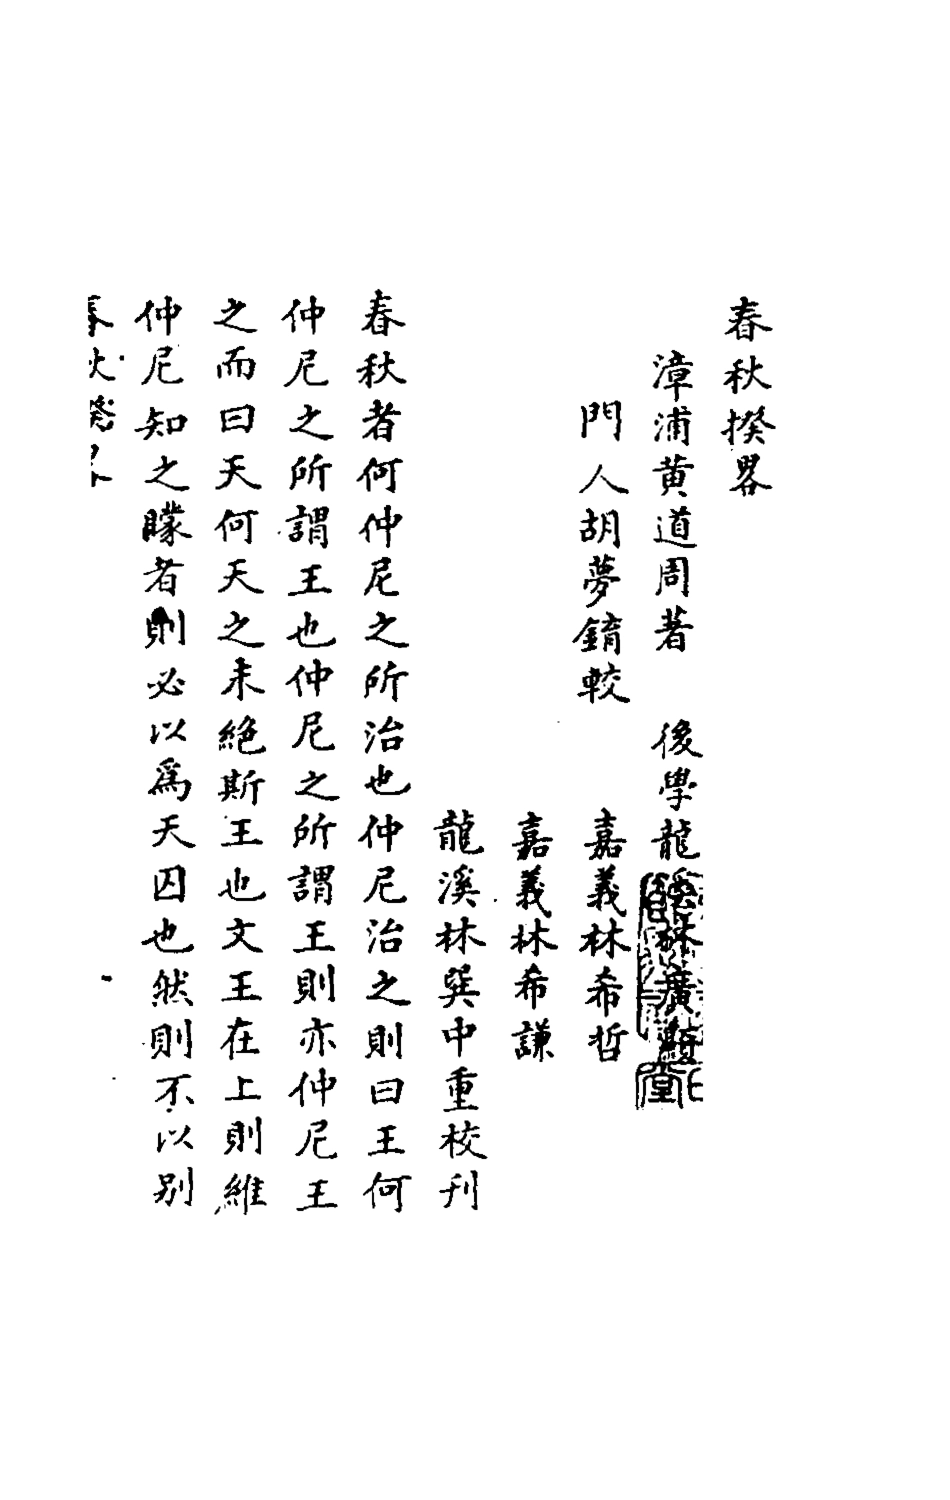 春秋揆畧
漳浦黃道周著　後學龍溪林廣顯
門人胡夢錥較　嘉義林希哲
嘉義林希謙
龍溪林巽中重校刊
春秋者何仲尼之所治也仲尼治之則曰王何
仲尼之所謂王也仲尼之所謂王則亦仲尼王
之而曰天何天之未絕斯王也文王在上則維
仲尼知之矇者則必以爲天囚也然則不以別
春秋揆畧